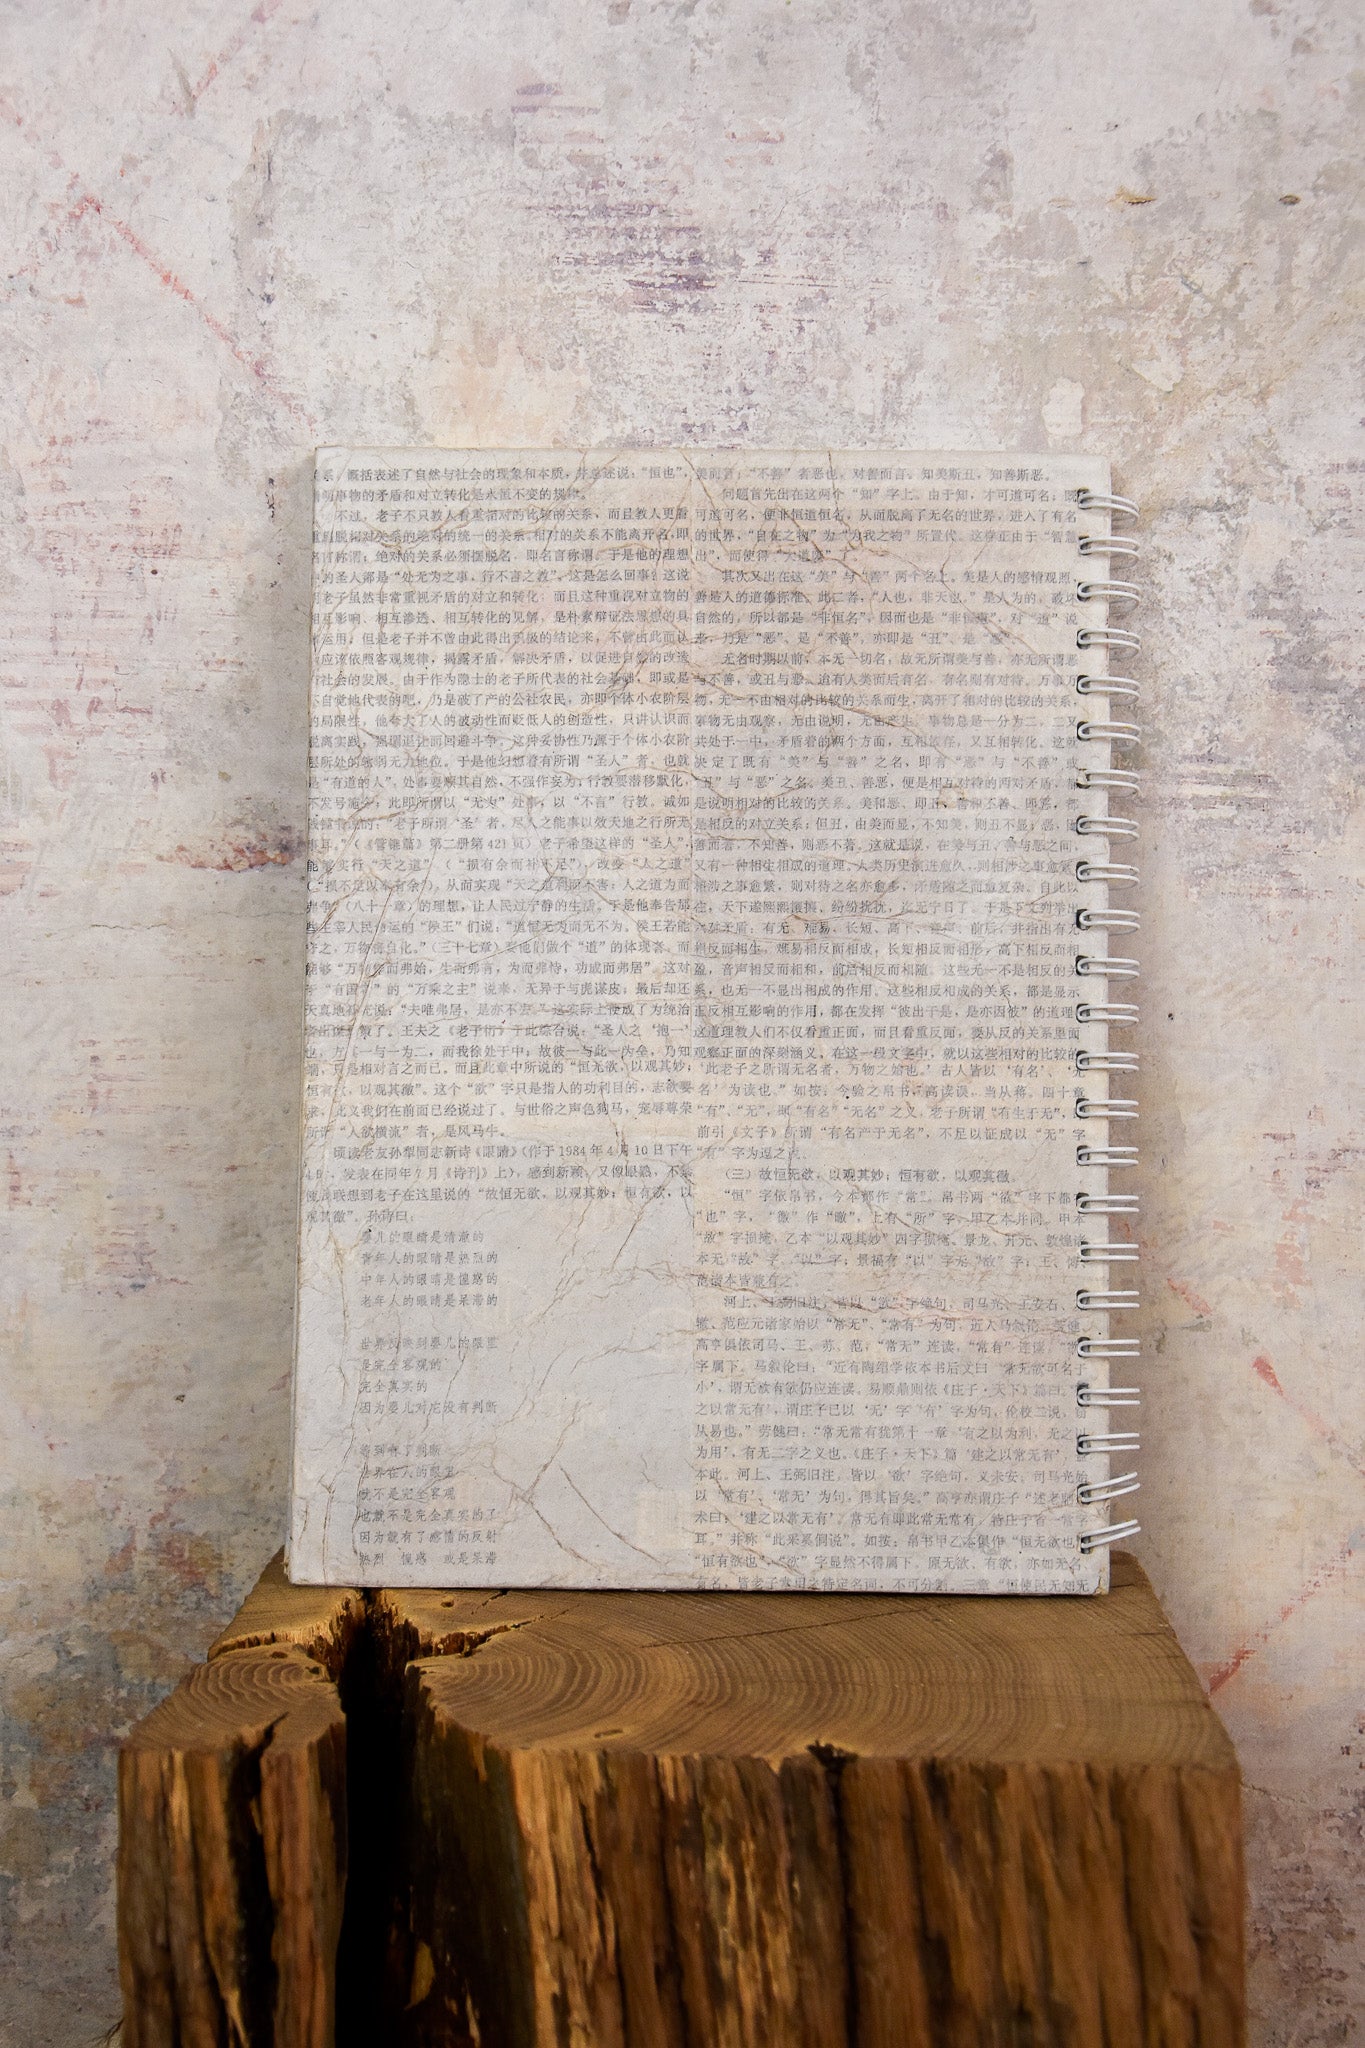 概括表述了自然与社会的现象和本质，并总述说：“恒也”，
事物的矛盾和对立转化是永恒不变的规律。
不过，老子不只教人看重相对的比较的关系，而且教人更看
脱离对关系的绝对的统一的关系。相对的关系不能离开名，即
名言称谓；绝对的关系必须摆脱名，即名言称谓。于是他的理想
的圣人都是“处无为之事，行不言之教”。这是怎么回事？这说
老子虽然非常重视矛盾的对立和转化；而且这种重视对立物的
相互影响、相互渗透、相互转化的见解，是朴素辩证法思想的具
运用；但是老子并不曾由此得出积极的结论来，不曾由此而认
应该依照客观规律，揭露矛盾，解决矛盾，以促进自然的改造
社会的发展。由于作为隐士的老子所代表的社会基础，即或是
不自觉他代表的吧，乃是破了产的公社农民，亦即个体小农阶层
的局限性，他夸大了人的被动性而贬低人的创造性，只讲认识而
脱离实践，强调退让而回避斗争。这种妥协性乃源于个体小农阶
层所处的软弱无力地位。于是他幻想着有所谓“圣人”者，也就
是“有道的人”，处事要顺其自然，不强作妄为；行教要潜移默化，
不发号施令；此即所谓以“无为”处事，以“不言”行教。诚如
“老子所谓‘圣’者，尽人之能事以效天地之行所无
事耳。”（《管锥篇》第二册第421页）老子希望这样的“圣人”，
能够实行“天之道”（“损有余而补不足”），改变“人之道”
（“损不足以奉有余”），从而实现“天之道利而不害；人之道为而
弗争”（八十一章）的理想，让人民过宁静的生活。于是他奉告那
些主宰人民命运的“侯王”们说：“道恒无为而无不为。侯王若能
守之，万物将自化。”（三十七章）要他们做个“道”的体现者，而
能够“万物作而弗始，生而弗有，为而弗恃，功成而弗居”。这对
于“有国”的“万乘之主”说来，无异于与虎谋皮；最后却还
天真地补充说：“夫唯弗居，是亦不去。”这实际上变成了为统治
了。王夫之《老子衍》于此综合说：“圣人之‘抱一’
也，方其一与一为二，而我徐处于中；故彼一与此一为垒，乃知
只是相对言之而已。而且此章中所说的“恒无欲，以观其妙；
恒有欲，以观其徼”。这个“欲”字只是指人的功利目的，志欲要
求，此义我们在前面已经说过了。与世俗之声色狗马，宠辱尊荣
所谓“人欲横流”者，是风马牛。
顷读老友孙犁同志新诗《眼睛》（作于1984年4月10日下午
发表在同年7月《诗刊》上），感到新颖，又像眼熟，不禁
联想到老子在这里说的“故恒无欲，以观其妙；恒有欲，以
观其徼”。孙诗曰：
婴儿的眼睛是清澈的
青年人的眼睛是热烈的
中年人的眼睛是惶惑的
老年人的眼睛是呆滞的
世界反映到婴儿的眼里
是完全客观的
完全真实的
因为婴儿对它没有判断
等到有了判断
世界在人的眼里
就不是完全客观
也就不是完全真实的了
因为就有了感情的反射
热烈 惶惑 或是呆滞
美而言；“不善”者恶也，对善而言。知美斯丑，知善斯恶。
问题首先出在这两个“知”字上。由于知，才可道可名；既
可道可名，便非恒道恒名，从而脱离了无名的世界，进入了有名
的世界，“自在之物”为“为我之物”所置代。这春正由于“智慧
出”，而使得“大道废”了。
其次又出在这“美”与“善”两个名上。美是人的感情观照，
善是人的道德标准。此二者，“人也，非天也。”是人为的，破坏
自然的，所以都是“非恒名”，因而也是“非恒道”，对“道”说
来，乃是“恶”、是“不善”，亦即是“丑”、是“恶”。
无名时期以前，本无一切名；故无所谓美与善，亦无所谓恶
与不善，或丑与恶。迨有人类而后有名，有名则有对待。万事万
物，无一不由相对的比较的关系而生，离开了相对的比较的关系，
事物无由观察，无由说明，无由产生。事物总是一分为二，二又
共处于一中，矛盾着的两个方面，互相依存，又互相转化。这就
决定了既有“美”与“善”之名，即有“恶”与“不善”或
“丑”与“恶”之名。美丑、善恶，便是相互对待的两对矛盾，都
是说明相对的比较的关系。美和恶、即丑，善和不善、即恶，都
是相反的对立关系；但丑，由美而显，不知美，则丑不显；恶，因
善而著，不知善，则恶不著。这就是说，在美与丑、善与恶之间，
又有一种相生相成的道理。人类历史演进愈久，则相涉之事愈繁，
相涉之事愈繁，则对待之名亦愈多，矛盾随之而愈复杂。自此以
往，天下遂熙熙攘攘，纷纷扰扰，迄无宁日了。于是下文列举出
六对矛盾：有无、难易、长短、高下、音声、前后，并指出有无
相反而相生，难易相反而相成，长短相反而相形，高下相反而相
盈，音声相反而相和，前后相反而相随。这些无一不是相反的关
系，也无一不显出相成的作用。这些相反相成的关系，都是显示
正反相互影响的作用，都在发挥“彼出于是，是亦因彼”的道理。
这道理教人们不仅看重正面，而且看重反面，要从反的关系里面
观察正面的深刻涵义。在这一段文字中，就以这些相对的比较的
‘此老子之所谓无名者，万物之始也。’古人皆以‘有名’、‘无
名’为读也。”如按：今验之帛书，高读误，当从蒋。四十章
“有”、“无”，即“有名”“无名”之义，老子所谓“有生于无”，
前引《文子》所谓“有名产于无名”，不足以证成以“无”字
“有”字为逗之说。
（三）故恒无欲，以观其妙；恒有欲，以观其徼。
“恒”字依帛书，今本都作“常”。帛书两“欲”字下都有
“也”字，“徼”作“噭”，上有“所”字，甲乙本并同。甲本
“故”字损掩，乙本“以观其妙”四字损掩。景龙、开元、敦煌诸
本无“故”字、“以”字；景福有“以”字无“故”字；王、傅、
范诸本皆兼有之。
河上、王弼旧注，皆以“欲”字绝句，司马光、王安石、
辙、范应元诸家始以“常无”、“常有”为句，近人马叙伦、
高亨俱依司马、王、苏、范，“常无”连读，“常有”连读，“欲”
字属下。马叙伦曰：“近有陶绍学依本书后文曰‘常无欲可名于
小’，谓无欲有欲仍应连读。易顺鼎则依《庄子·天下》篇曰，
之以常无有’，谓庄子已以‘无’字‘有’字为句，伦校二说，窃
从易也。”劳健曰：“常无常有犹第十一章‘有之以为利，无之以
为用’，有无二字之义也。《庄子·天下》篇‘建之以常无有’，盖
本此。河上、王弼旧注，皆以‘欲’字绝句，义未安。司马光始
以‘常有’、‘常无’为句，得其旨矣。”高亨亦谓庄子“述老聃
术曰：‘建之以常无有’，常无有即此常无常有，特庄子省一常字
耳。”并称“此采奚侗说”。如按：帛书甲乙本俱作“恒无欲也”
“恒有欲也”，“欲”字显然不得属下。原无欲、有欲，亦如无名
有名，皆老子常用之特定名词，不可分割。三章“恒使民无知无